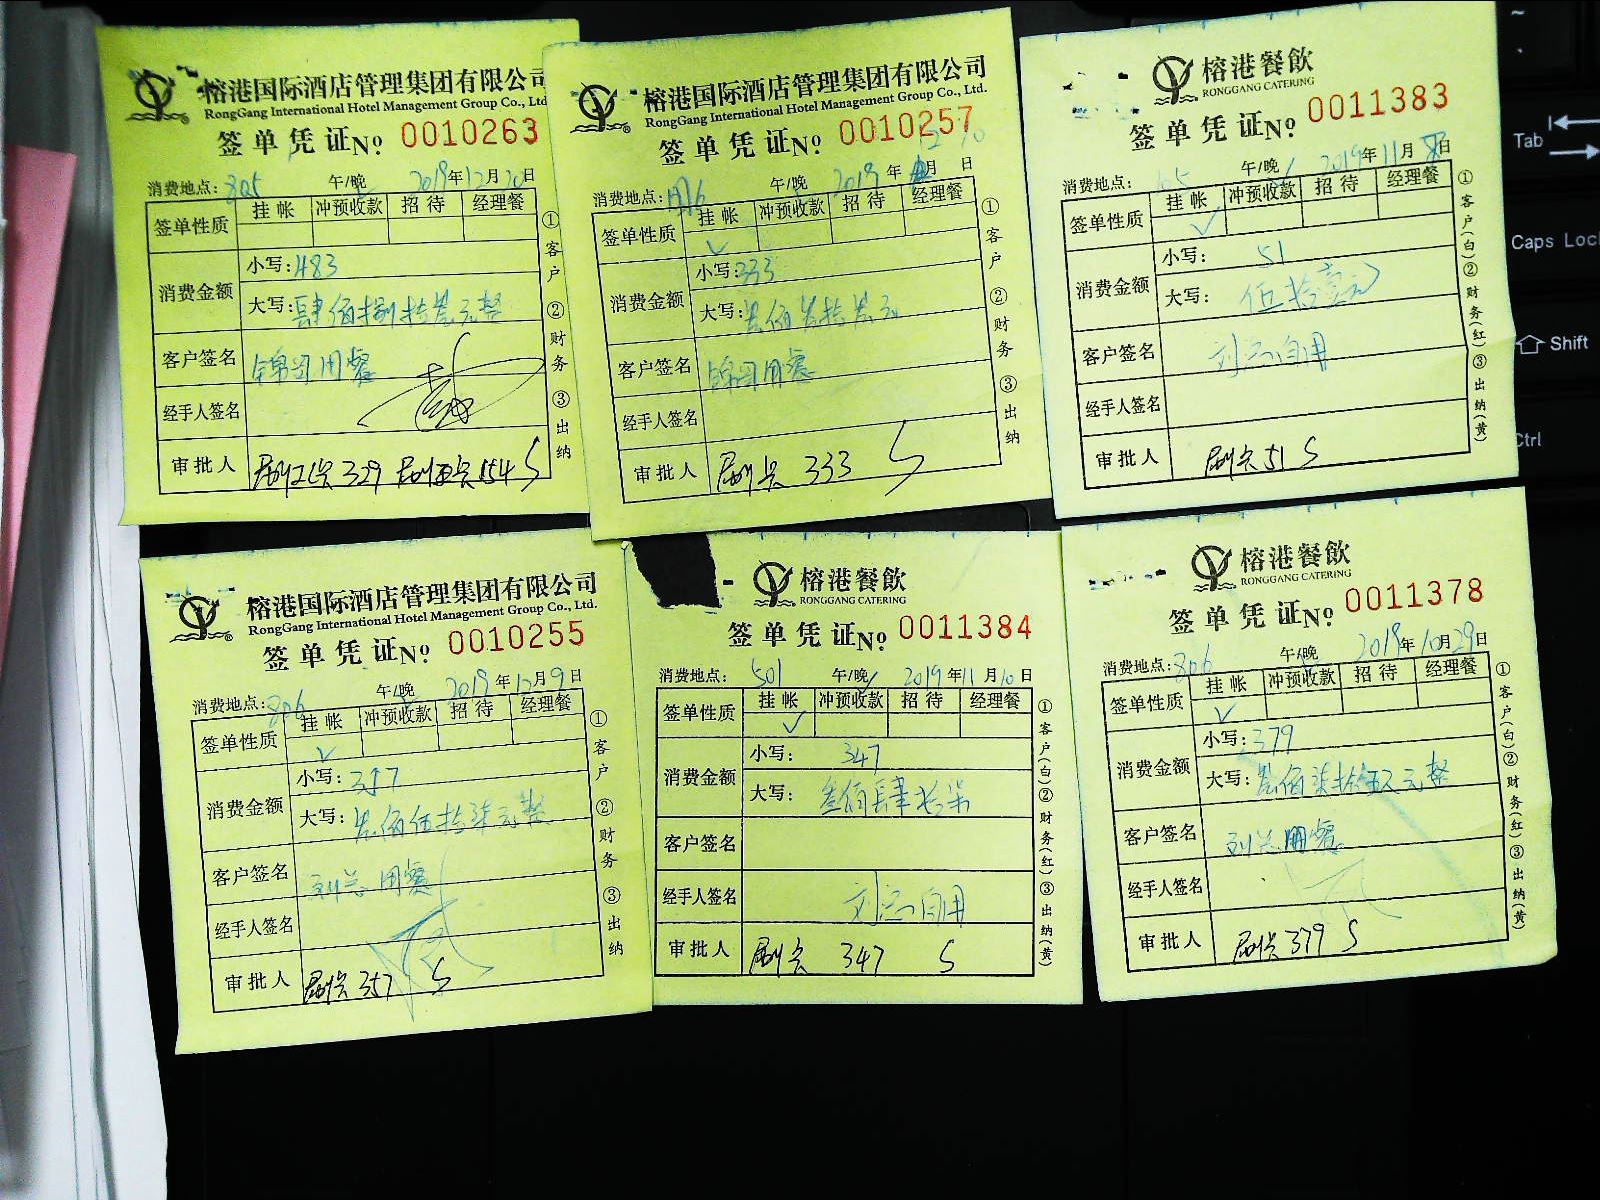 榕港国际酒店管理集团有限公司
RongGang International Hotel Management Group Co., Ltd
签单凭证No. 0010263
消费地点: 805 午/晚 2019年12月20日
签单性质 挂帐 冲预收款 招待 经理餐
消费金额 小写: 483
大写: 肆佰捌拾叁元整
客户签名 锦司用餐
经手人签名
审批人 329 154
①客户 ②财务 ③出纳
榕港国际酒店管理集团有限公司
RongGang International Hotel Management Group Co., Ltd.
签单凭证No. 0010257
消费地点: 午/晚 2019年12月10日
签单性质 挂帐 冲预收款 招待 经理餐
✓
消费金额 小写: 333
大写: 叁佰叁拾叁元
客户签名 锦司用餐
经手人签名
审批人 刷卡 333
①客户 ②财务 ③出纳
榕港餐飲
RONGGANG CATERING
签单凭证No. 0011383
消费地点: 午/晚 2019年11月8日
签单性质 挂帐 冲预收款 招待 经理餐
✓
消费金额 小写: 51
大写: 伍拾壹元
客户签名 刘总自用
经手人签名
审批人 刷卡 51
①客户(白)②财务(红)③出纳(黄)
榕港国际酒店管理集团有限公司
RongGang International Hotel Management Group Co., Ltd.
签单凭证No. 0010255
消费地点: 806 午/晚 2019年12月9日
签单性质 挂帐 冲预收款 招待 经理餐
✓
消费金额 小写: 357
大写: 叁佰伍拾柒元整
客户签名 刘总用餐
经手人签名
审批人 刷卡 357
①客户 ②财务 ③出纳
榕港餐飲
RONGGANG CATERING
签单凭证No. 0011384
消费地点: 501 午/晚 2019年11月10日
签单性质 挂帐 冲预收款 招待 经理餐
✓
消费金额 小写: 347
大写: 叁佰肆拾柒
客户签名
经手人签名 刘总自用
审批人 刷卡 347
①客户(白)②财务(红)③出纳(黄)
榕港餐飲
RONGGANG CATERING
签单凭证No. 0011378
消费地点: 806 午/晚 2019年10月29日
签单性质 挂帐 冲预收款 招待 经理餐
✓
消费金额 小写: 379
大写: 叁佰柒拾玖元整
客户签名 刘总用餐
经手人签名
审批人 刷卡 379
①客户(白)②财务(红)③出纳(黄)
Tab
Caps Loc
Shift
Ctrl